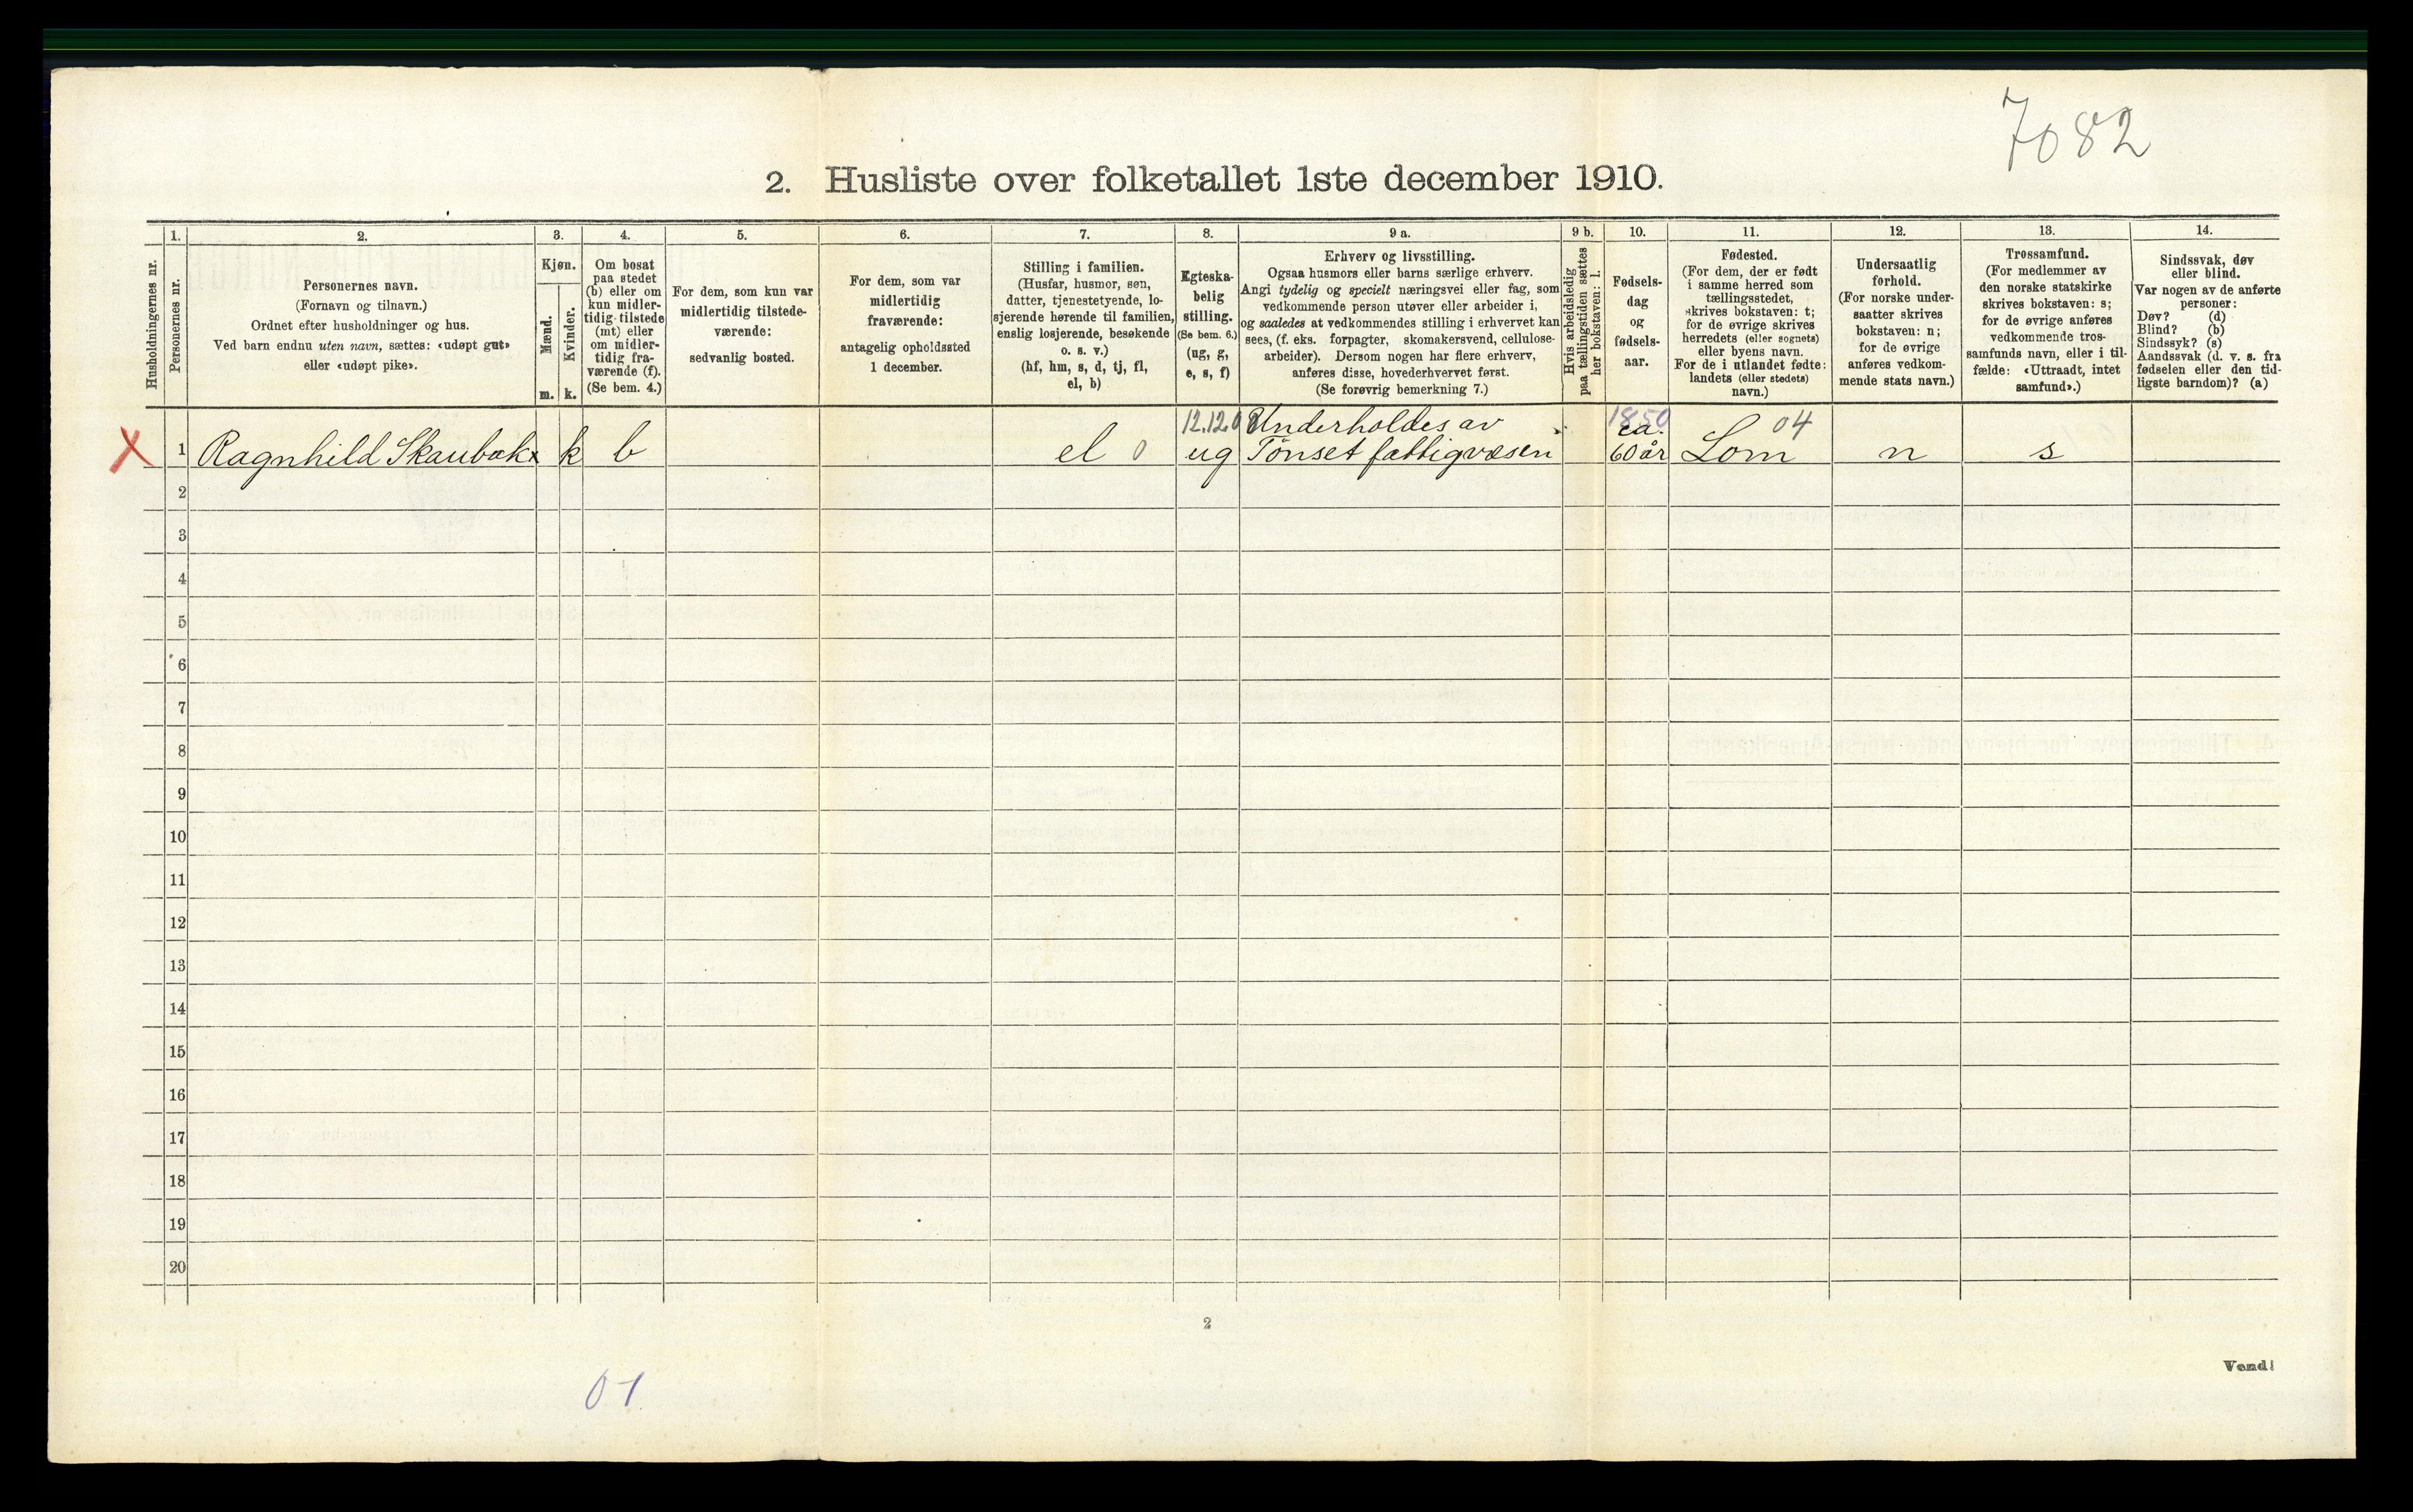 7082
2. Husliste over folketallet 1ste december 1910.
Husholdningernes nr.
1.
Personernes nr.
2.
Personernes navn.
(Fornavn og tilnavn.)
Ordnet efter husholdninger og hus.
Ved barn endnu uten navn, sættes: «udøpt gut»
eller «udøpt pike».
3.
Kjøn.
Mænd.
m.
Kvinder.
k.
4.
Om bosat
paa stedet
(b) eller om
kun midler-
tidig tilstede
(mt) eller
om midler-
tidig fra-
værende (f).
(Se bem. 4.)
5.
For dem, som kun var
midlertidig tilstede-
værende:
sedvanlig bosted.
6.
For dem, som var
midlertidig
fraværende:
antagelig opholdssted
1 december.
7.
Stilling i familien.
(Husfar, husmor, søn,
datter, tjenestetyende, lo-
sjerende hørende til familien,
enslig losjerende, besøkende
o. s. v.)
(hf, hm, s, d, tj, fl,
el, b)
8.
Egteska-
belig
stilling.
(Se bem. 6.)
(ug, g,
e, s, f)
9 a.
Erhverv og livsstilling.
Ogsaa husmors eller barns særlige erhverv.
Angi tydelig og specielt næringsvei eller fag, som
vedkommende person utøver eller arbeider i,
og saaledes at vedkommendes stilling i erhvervet kan
sees, (f. eks. forpagter, skomakersvend, cellulose-
arbeider). Dersom nogen har flere erhverv,
anføres disse, hovederhvervet først.
(Se forøvrig bemerkning 7.)
9 b.
Hvis arbeidsledig
paa tællingstiden sættes
her bokstaven: l.
10.
Fødsels-
dag
og
fødsels-
aar.
11.
Fødested.
(For dem, der er født
i samme herred som
tællingsstedet,
skrives bokstaven: t;
for de øvrige skrives
herredets (eller sognets)
eller byens navn.
For de i utlandet fødte:
landets (eller stedets)
navn.)
12.
Undersaatlig
forhold.
(For norske under-
saatter skrives
bokstaven: n;
for de øvrige
anføres vedkom-
mende stats navn.)
13.
Trossamfund.
(For medlemmer av
den norske statskirke
skrives bokstaven: s;
for de øvrige anføres
vedkommende tros-
samfunds navn, eller i til-
fælde: «Uttraadt, intet
samfund».)
14.
Sindssvak, døv
eller blind.
Var nogen av de anførte
personer:
Døv? (d)
Blind? (b)
Sindssyk? (s)
Aandssvak (d. v. s. fra
fødselen eller den tid-
ligste barndom)? (a)
12.12.0 Underholdes av 1850 ca. 04
X 1 Ragnhild Skaubakx k b el 0 ug Tönset fattigvæsen 60 år Lom n s
2
3
4
5
6
7
8
9
10
11
12
13
14
15
16
17
18
19
20
2
Vend!
01